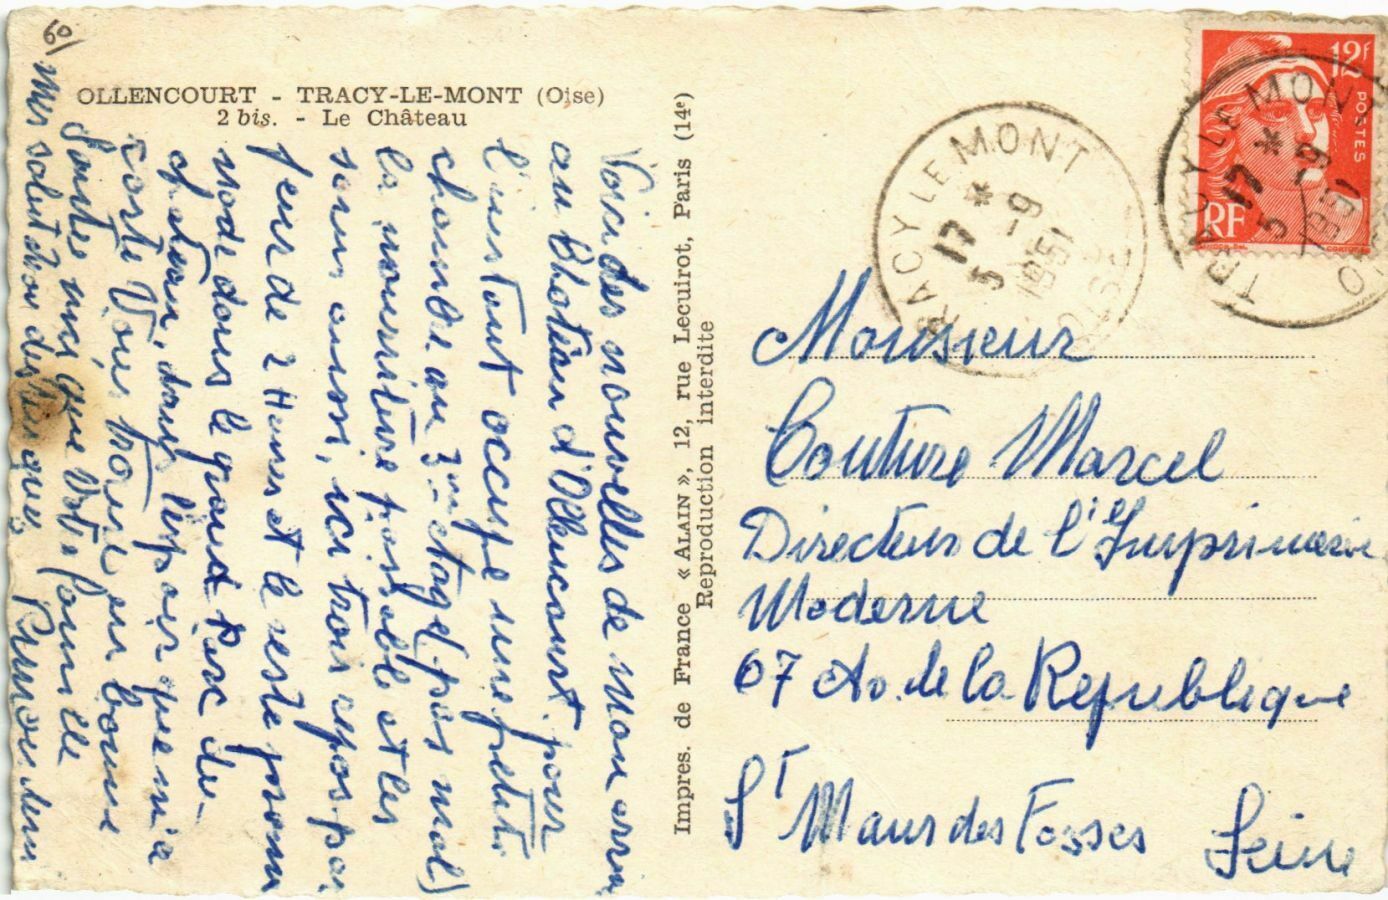 60/
OLLENCOURT - TRACY-LE-MONT (Oise)
2 bis. - Le Château
Voici des nouvelles de mon arrivé
au Chateau d'Ollencourt pour
l'instant occupe une petite
chambre au 3me étage (pas mal)
la nourriture passable et les
soins aussi, ici trois repos par
jour de 2 Heures et le reste prom
nade dans le grand Parc du
chateau, dans l'espoir que ma
carte Vous trouve en bonne
Santée ainsi que Votre famille
Mes salutations
Impres. de France « ALAIN », 12, rue Lecuirot, Paris (14e)
Reproduction interdite
12F
POSTES
RF
TRACY LE MONT
17 *
5 -9
1951
OISE
TRACY LE MONT
17 *
5 -9
1951
Monsieur
Couture Marcel
Directeur de l'Imprimerie
Moderne
67 Av. de la Republique
St Maur des Fosses Seine